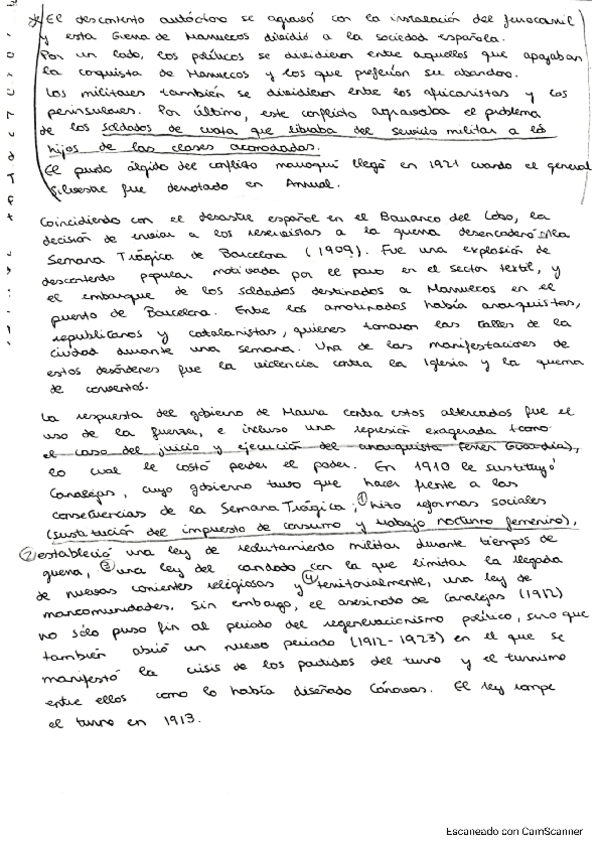 * El descontento autóctono se agravó con la instalación del ferrocarril
y esta Guerra de Marruecos dividió a la sociedad española.
Por un lado, los políticos se dividieron entre aquellos que apoyaban
la conquista de Marruecos y los que preferían su abandono.
Los militares también se dividieron entre los africanistas y los
peninsulares. Por último, este conflicto agravaba el problema
de los soldados de cuota que libraba del servicio militar a los
hijos de las clases acomodadas.
El punto álgido del conflicto marroquí llegó en 1921 cuando el general
Silvestre fue derrotado en Annual.
Coincidiendo con el desastre español en el Barranco del Lobo, la
decisión de enviar a los reservistas a la guerra desencadenó la
Semana Trágica de Barcelona (1909). Fue una explosión de
descontento popular motivada por el paro en el sector textil, y
el embarque de los soldados destinados a Marruecos en el
puerto de Barcelona. Entre los amotinados había anarquistas,
republicanos y catalanistas, quienes tomaron las calles de la
ciudad durante una semana. Una de las manifestaciones de
estos desórdenes fue la violencia contra la Iglesia y la quema
de conventos.
La respuesta del gobierno de Maura contra estos altercados fue el
uso de la fuerza, e incluso una represión exagerada (como
el caso del juicio y ejecución del anarquista Ferrer Guardia),
lo cual le costó perder el poder. En 1910 le sustituyó
Canalejas, cuyo gobierno tuvo que hacer frente a las
consecuencias de la Semana Trágica; ① hizo reformas sociales
(sustitución del impuesto de consumo y trabajo nocturno femenino),
② estableció una ley de reclutamiento militar durante tiempos de
guerra, ③ una ley del candado con la que limitar la llegada
de nuevas corrientes religiosas y ④ territorialmente, una ley de
mancomunidades. Sin embargo, el asesinato de Canalejas (1912)
no sólo puso fin al periodo del regeneracionismo político, sino que
también abrió un nuevo periodo (1912-1923) en el que se
manifestó la crisis de los partidos del turno y el turnismo
entre ellos como lo había diseñado Cánovas. El rey rompe
el turno en 1913.
Escaneado con CamScanner